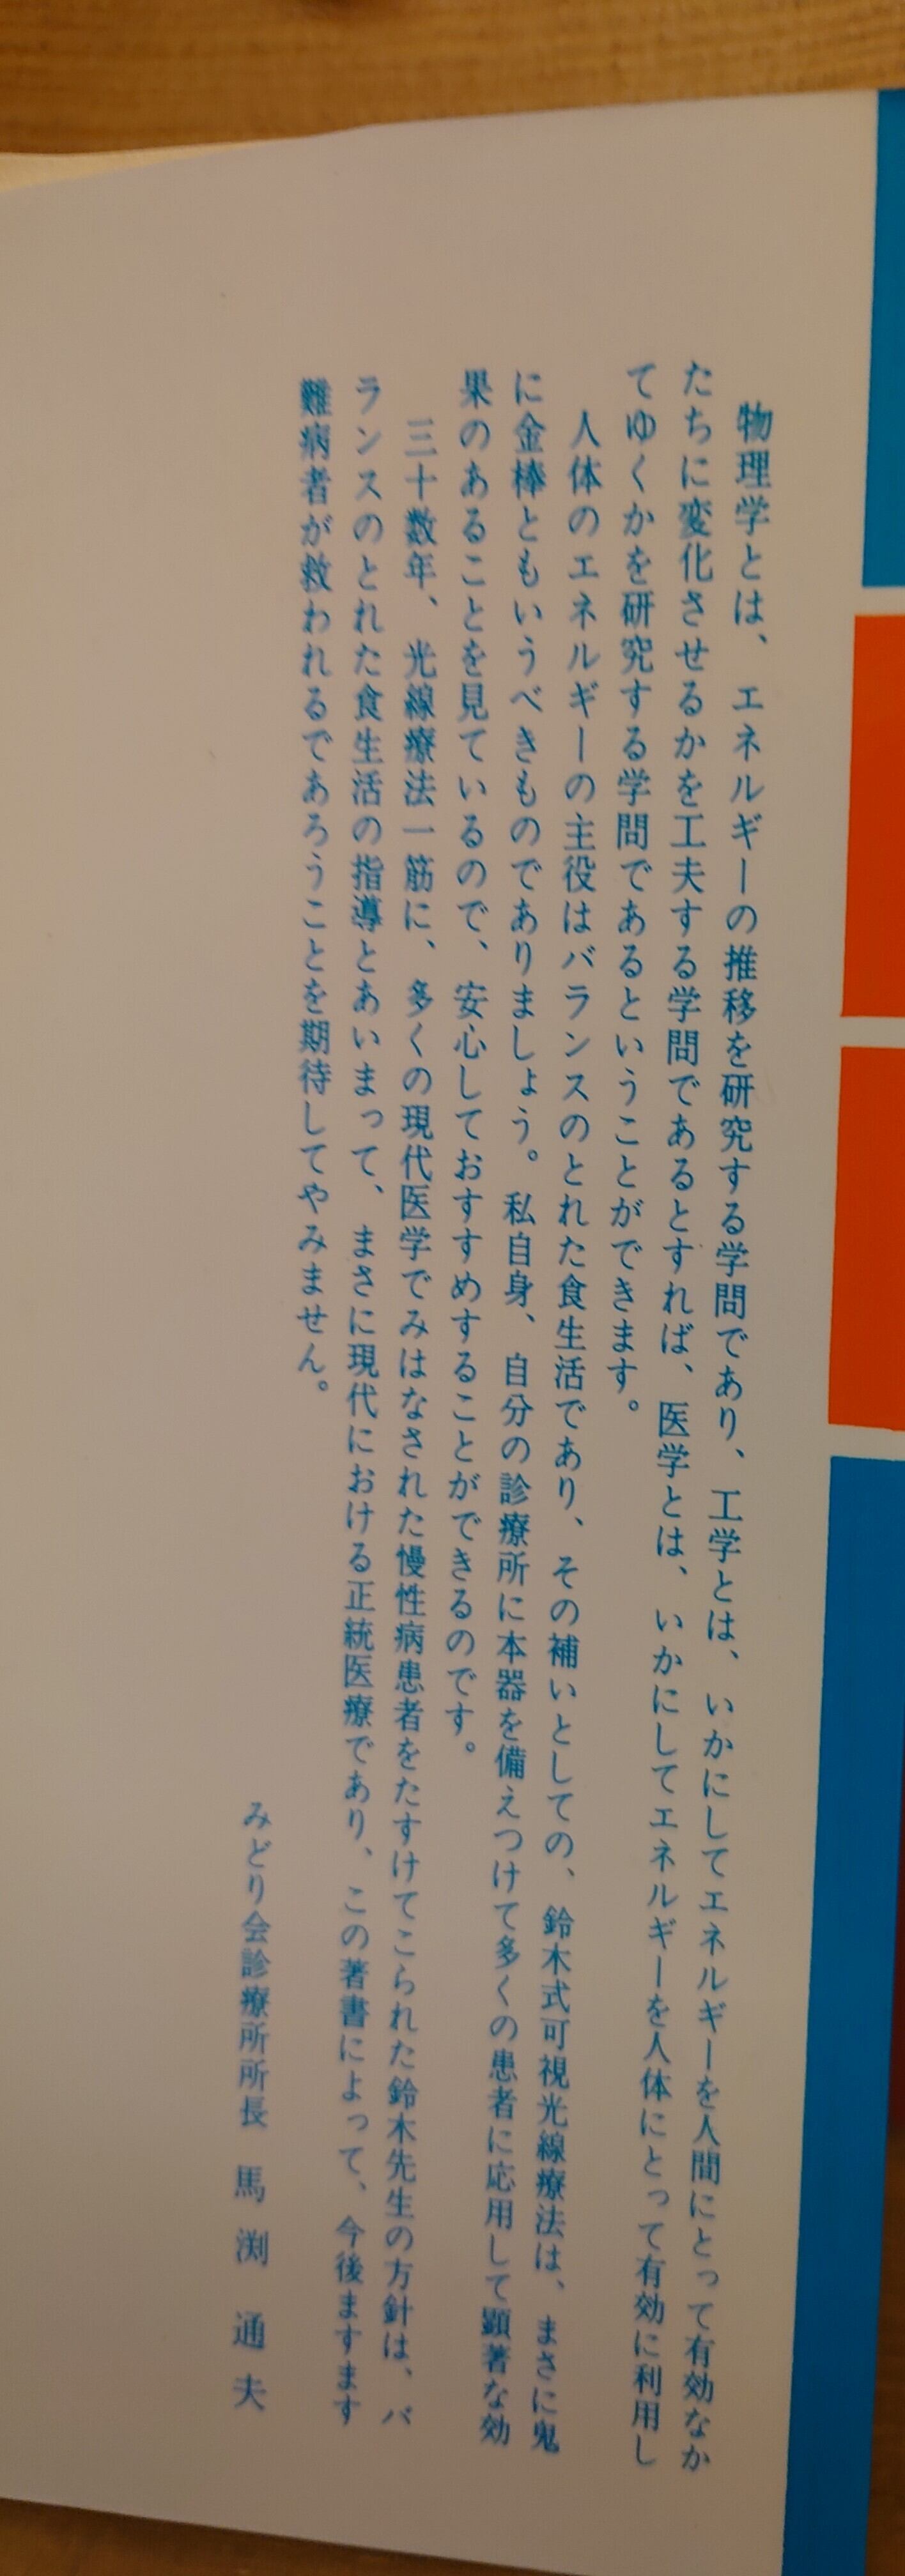 物理学とは、エネルギーの推移を研究する学問であり、工学とは、いかにしてエネルギーを人間にとって有効なか
たちに変化させるかを工夫する学問であるとすれば、医学とは、いかにしてエネルギーを人体にとって有効に利用し
てゆくかを研究する学問であるということができます。
人体のエネルギーの主役はバランスのとれた食生活であり、その補いとしての、鈴木式可視光線療法は、まさに鬼
に金棒ともいうべきものでありましょう。私自身、自分の診療所に本器を備えつけて多くの患者に応用して顕著な効
果のあることを見ているので、安心しておすすめすることができるのです。
三十数年、光線療法一筋に、多くの現代医学でみはなされた慢性病患者をたすけてこられた鈴木先生の方針は、バ
ランスのとれた食生活の指導とあいまって、まさに現代における正統医療であり、この著書によって、今後ますます
難病者が救われるであろうことを期待してやみません。
みどり会診療所所長 馬渕通夫